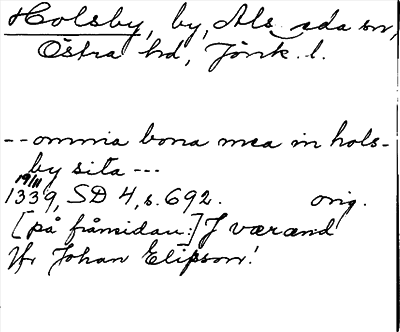 Holsby, by, Alseda sn,
Östra hd, Jönk. l.
-- omnia bona mea in hols-
by sita ---
19/11
1339, SD 4, s. 692. orig.
[på frånsidan:] J værænd
Hr Johan Elifson!